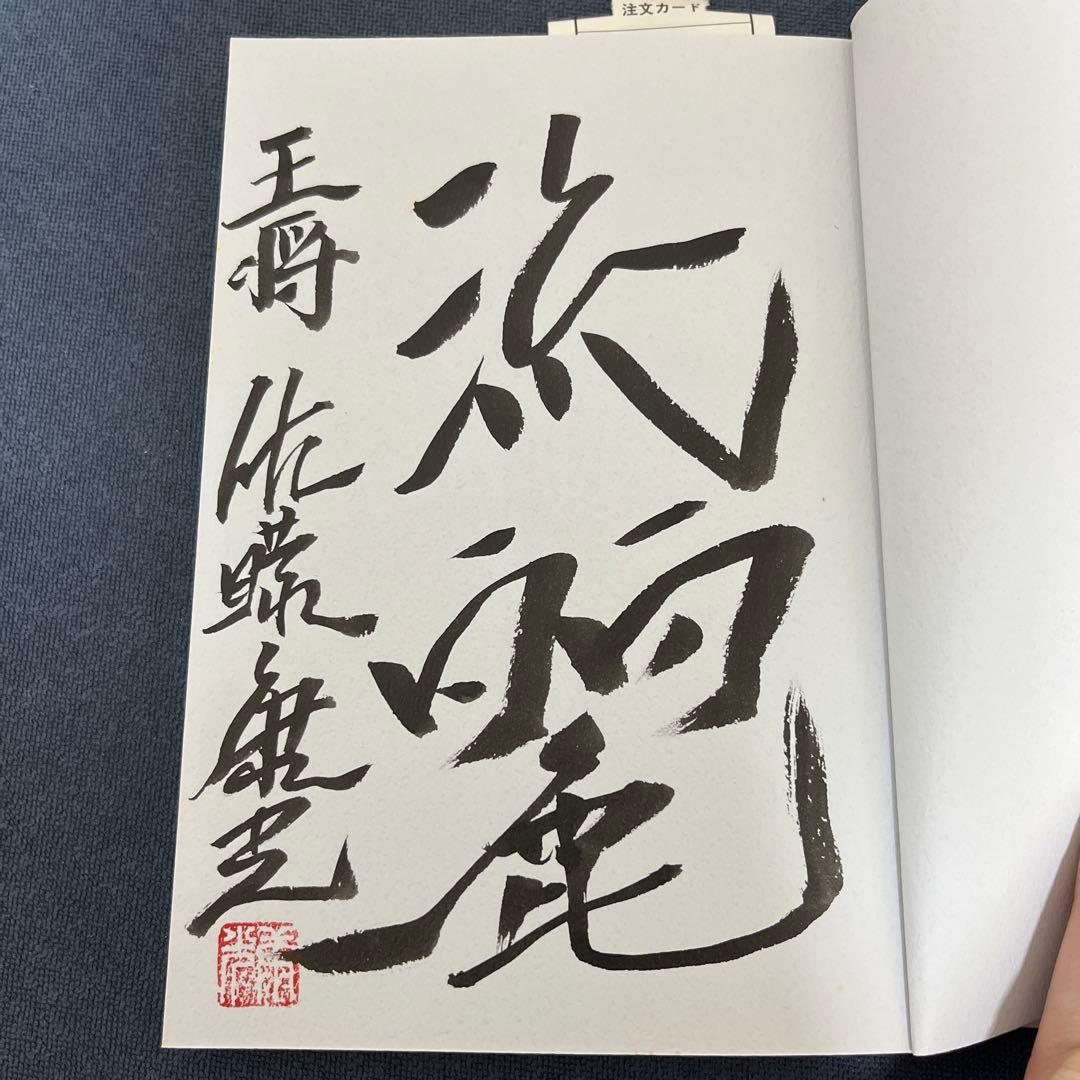 注文カード
流麗
王将 佐藤康光